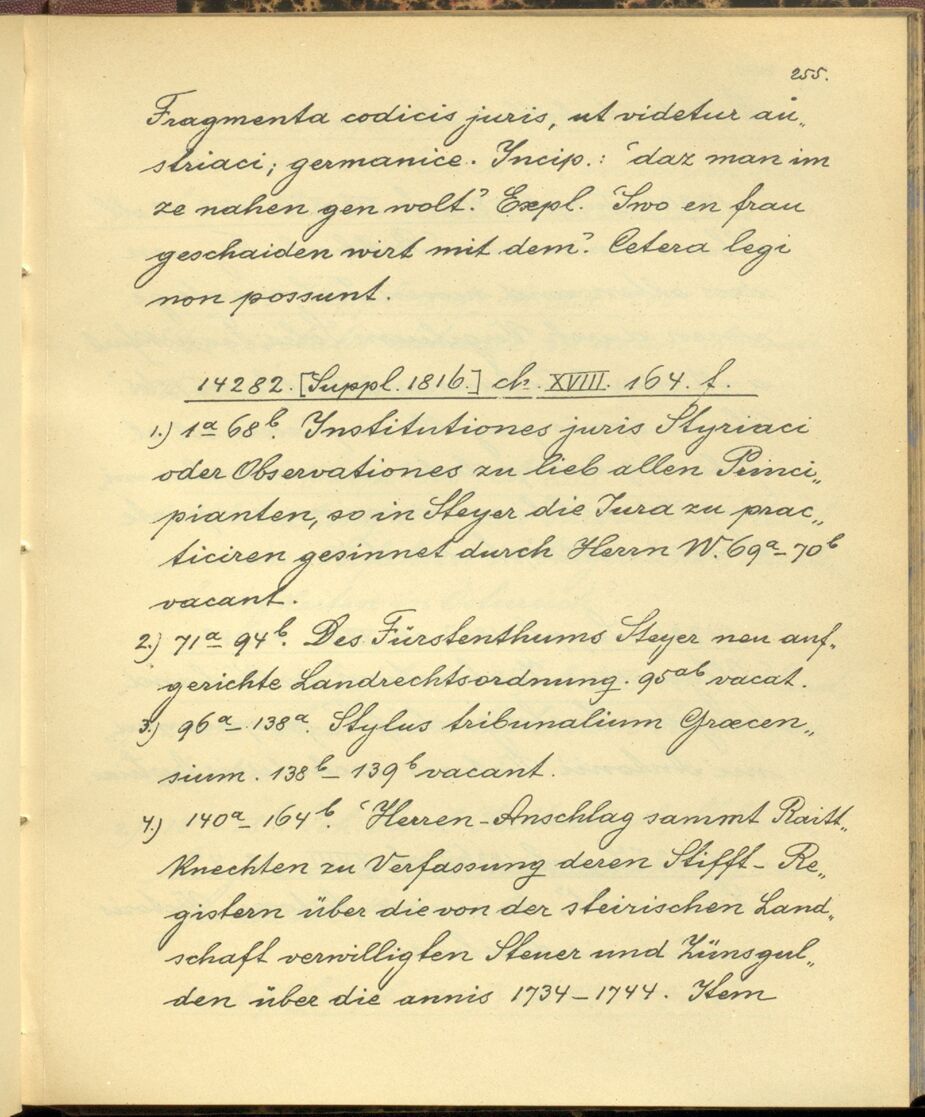 255.
Fragmenta codicis juris, ut videtur au„
striaci; germanice. Incip.: 'daz man im
ze nahen gen wolt.' Expl. 'Swo en frau
geschaiden wirt mit dem.' Cetera legi
non possunt.
14282. [Suppl. 1816.] ch. XVIII. 164. f.
1.) 1a 68b. Institutiones juris Styriaci
oder Observationes zu lieb allen Princi„
pianten, so in Steyer die Jura zu prac„
ticiren gesinnet durch Herrn W. 69a–70b
vacant.
2.) 71a–94b. Des Fürstenthums Steyer neu auf„
gerichte Landrechtsordnung. 95ab vacat.
3.) 96a–138a. Stylus tribunalium Græcen„
sium. 138b–139b vacant.
4.) 140a–164b. 'Herren-Anschlag sammt Raitt„
Knechten zu Verfassung deren Stifft-Re„
gistern über die von der steirischen Land„
schaft verwilligten Steuer und Zünsgul„
den über die annis 1734–1744. Item